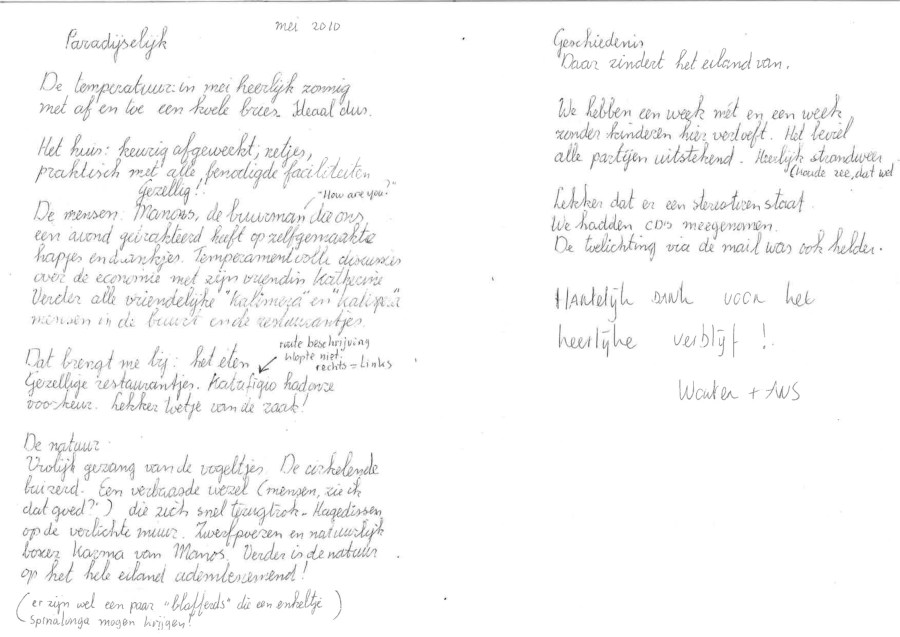 mei 2010
Paradijselijk
De temperatuur: in mei heerlijk zonnig
met af en toe een koele bries. Ideaal dus.
Het huis: keurig afgewerkt, netjes,
praktisch met alle benodigde faciliteiten
Gezellig!
"How are you?"
De mensen. Manolis, de buurman die ons
een avond getrakteerd heeft op zelfgemaakte
hapjes en drankjes. Temperamentvolle discussies
over de economie met zijn vriendin Katherine
Verder alle vriendelijke "Kalimera" en "Kalispera"
mensen in de buurt en de restaurantjes.
route beschrijving
klopte niet.
rechts = Links
Dat brengt me bij: het eten
Gezellige restaurantjes. Katafigio had onze
voorkeur. Lekker toetje van de zaak!
De natuur
Vrolijk gezang van de vogeltjes. De cirkelende
buizerd. Een verbaasde wezel (mensen, zie ik
dat goed?") die zich snel terugtrok. Hagedissen
op de verlichte muur. Zwerfpoezen en natuurlijk
boxer Karma van Manos. Verder is de natuur
op het hele eiland adembenemend!
(er zijn wel een paar "blaffends" die een enkeltje)
Spinalonga mogen krijgen!
Geschiedenis
Daar zindert het eiland van.
We hebben een week mét en een week
zonder kinderen hier vertoeft. Het beviel
alle partijen uitstekend. Heerlijk strandweer
(koude zee, dat wel
Lekker dat er een stereotoren staat.
We hadden CD's meegenomen.
De toelichting via de mail was ook helder.
Hartelijk dank voor het
heerlijke verblijf !.
Wouter + ANS